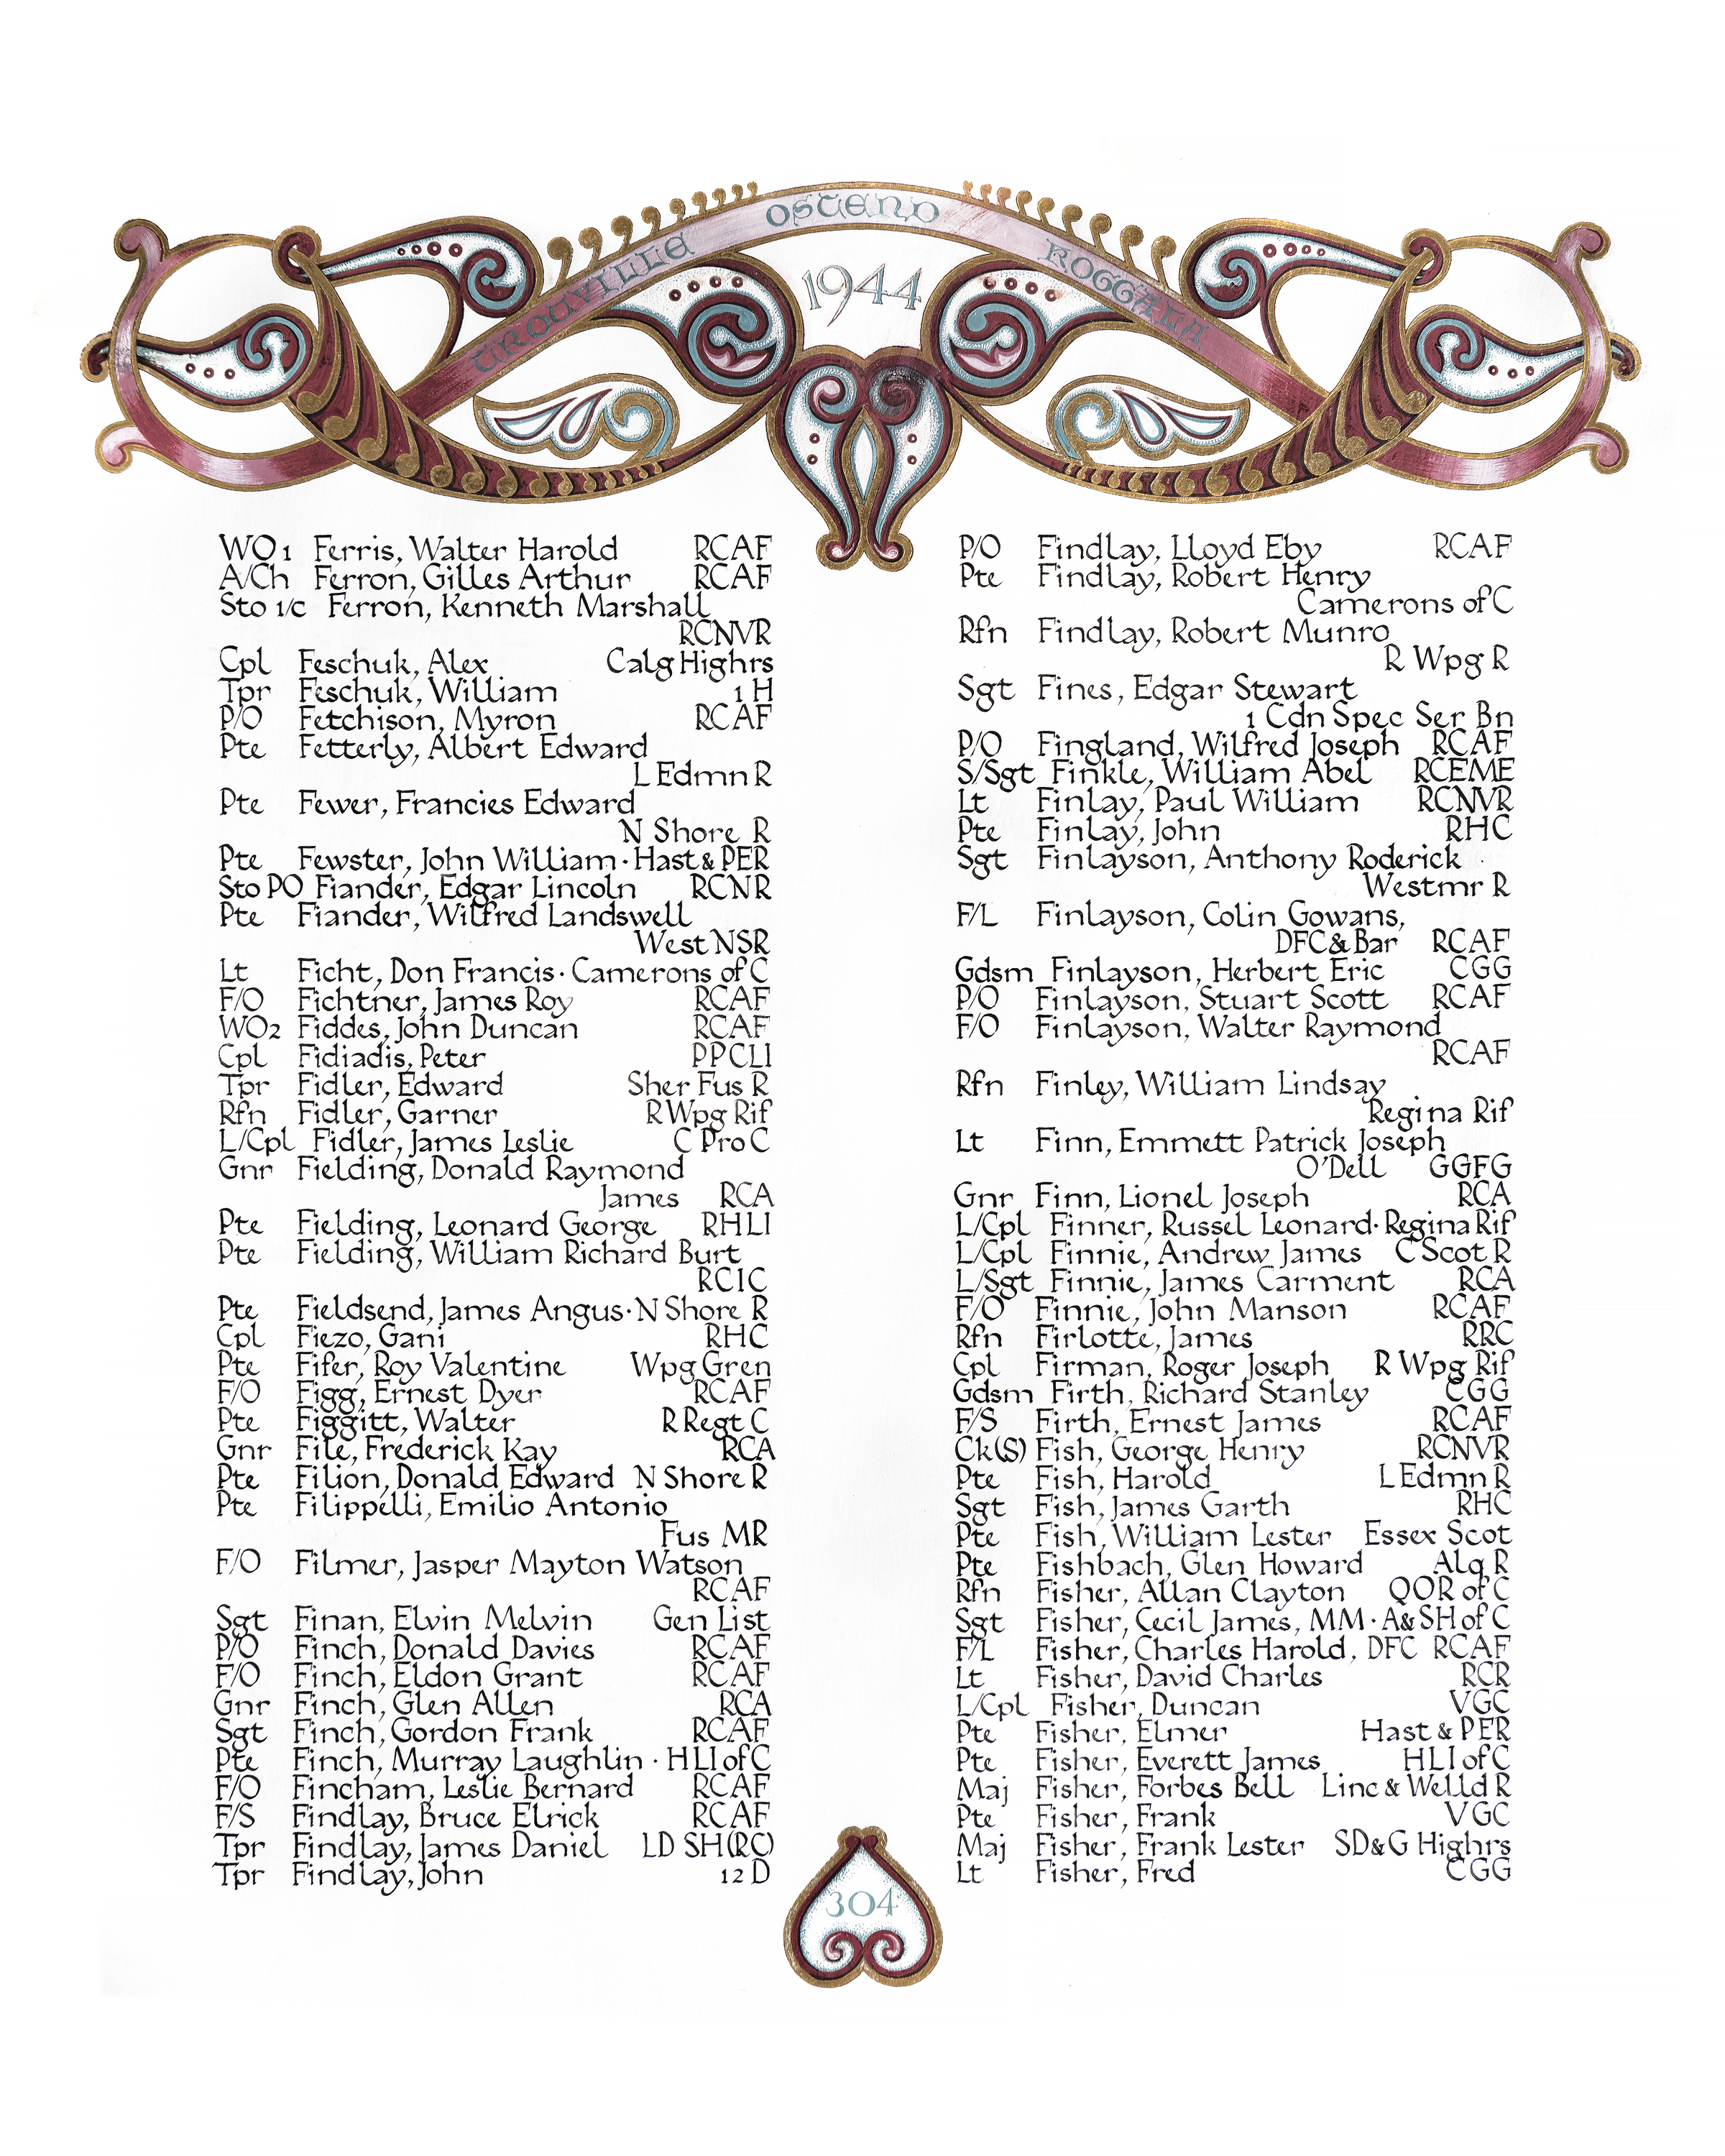 TROUVILLE OSTEND KOGGALA
1944
WO1 Ferris, Walter Harold RCAF
A/Ch Ferron, Gilles Arthur RCAF
Sto 1/c Ferron, Kenneth Marshall
RCNVR
Cpl Feschuk, Alex Calg Highrs
Tpr Feschuk, William 1 H
P/O Fetchison, Myron RCAF
Pte Fetterly, Albert Edward
L Edmn R
Pte Fewer, Francies Edward
N Shore R
Pte Fewster, John William · Hast & PER
Sto PO Fiander, Edgar Lincoln RCNR
Pte Fiander, Wilfred Landswell
West NSR
Lt Ficht, Don Francis · Camerons of C
F/O Fichtner, James Roy RCAF
WO2 Fiddes, John Duncan RCAF
Cpl Fidiadis, Peter PPCLI
Tpr Fidler, Edward Sher Fus R
Rfn Fidler, Garner R Wpg Rif
L/Cpl Fidler, James Leslie C Pro C
Gnr Fielding, Donald Raymond
James RCA
Pte Fielding, Leonard George RHLI
Pte Fielding, William Richard Burt
RCIC
Pte Fieldsend, James Angus · N Shore R
Cpl Fiezo, Gani RHC
Pte Fifer, Roy Valentine Wpg Gren
F/O Figg, Ernest Dyer RCAF
Pte Figgitt, Walter R Regt C
Gnr File, Frederick Kay RCA
Pte Filion, Donald Edward N Shore R
Pte Filippelli, Emilio Antonio
Fus MR
F/O Filmer, Jasper Mayton Watson
RCAF
Sgt Finan, Elvin Melvin Gen List
P/O Finch, Donald Davies RCAF
F/O Finch, Eldon Grant RCAF
Gnr Finch, Glen Allen RCA
Sgt Finch, Gordon Frank RCAF
Pte Finch, Murray Laughlin · HLI of C
F/O Fincham, Leslie Bernard RCAF
F/S Findlay, Bruce Elrick RCAF
Tpr Findlay, James Daniel LD SH (RC)
Tpr Findlay, John 12 D
P/O Findlay, Lloyd Eby RCAF
Pte Findlay, Robert Henry
Camerons of C
Rfn Findlay, Robert Munro
R Wpg R
Sgt Fines, Edgar Stewart
1 Cdn Spec Ser Bn
P/O Fingland, Wilfred Joseph RCAF
S/Sgt Finkle, William Abel RCEME
Lt Finlay, Paul William RCNVR
Pte Finlay, John RHC
Sgt Finlayson, Anthony Roderick
Westmr R
F/L Finlayson, Colin Gowans,
DFC & Bar RCAF
Gdsm Finlayson, Herbert Eric CGG
P/O Finlayson, Stuart Scott RCAF
F/O Finlayson, Walter Raymond
RCAF
Rfn Finley, William Lindsay
Regina Rif
Lt Finn, Emmett Patrick Joseph
O'Dell GGFG
Gnr Finn, Lionel Joseph RCA
L/Cpl Finner, Russel Leonard · Regina Rif
L/Cpl Finnie, Andrew James C Scot R
L/Sgt Finnie, James Carment RCA
F/O Finnie, John Manson RCAF
Rfn Firlotte, James RRC
Cpl Firman, Roger Joseph R Wpg Rif
Gdsm Firth, Richard Stanley CGG
F/S Firth, Ernest James RCAF
Ck(S) Fish, George Henry RCNVR
Pte Fish, Harold L Edmn R
Sgt Fish, James Garth RHC
Pte Fish, William Lester Essex Scot
Pte Fishbach, Glen Howard Alq R
Rfn Fisher, Allan Clayton QOR of C
Sgt Fisher, Cecil James, MM · A&SH of C
F/L Fisher, Charles Harold, DFC RCAF
Lt Fisher, David Charles RCR
L/Cpl Fisher, Duncan VGC
Pte Fisher, Elmer Hast & PER
Pte Fisher, Everett James HLI of C
Maj Fisher, Forbes Bell Linc & Welld R
Pte Fisher, Frank VGC
Maj Fisher, Frank Lester SD&G Highrs
Lt Fisher, Fred CGG
304